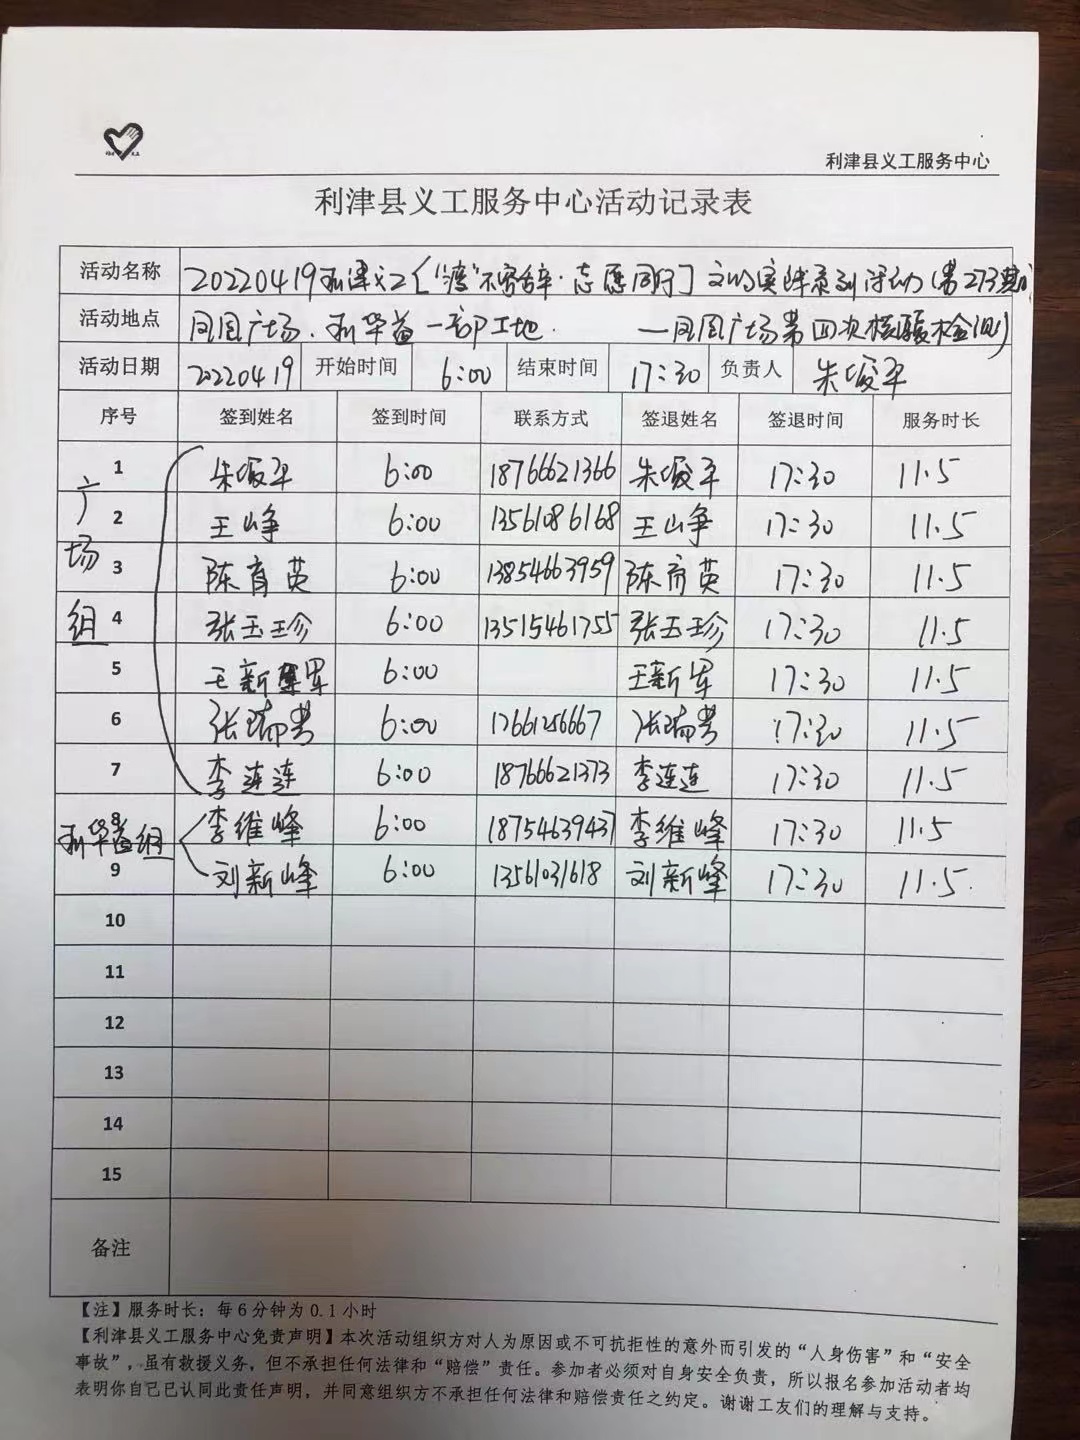 利津县义工服务中心
利津县义工服务中心活动记录表
活动名称 20220419利津义工["疫"不容辞·志愿同行]文明实践系列活动(第273期
活动地点 凤凰广场.利华益一部工地. —凤凰广场第四次核酸检测)
活动日期 20220419 开始时间 6:00 结束时间 17:30 负责人 朱俊平
序号 签到姓名 签到时间 联系方式 签退姓名 签退时间 服务时长
广场组
1 朱俊平 6:00 18766621366 朱俊平 17:30 11.5
2 王峥 6:00 13561086168 王峥 17:30 11.5
3 陈育英 6:00 13854663959 陈育英 17:30 11.5
4 张玉珍 6:00 13515461755 张玉珍 17:30 11.5
5 王新军 6:00 王新军 17:30 11.5
6 张瑞 6:00 17661256667 张瑞 17:30 11.5
7 李连连 6:00 18766621373 李连连 17:30 11.5
利华益组
8 李维峰 6:00 18754639437 李维峰 17:30 11.5
9 刘新峰 6:00 13561031618 刘新峰 17:30 11.5.
10
11
12
13
14
15
备注
【注】服务时长：每6分钟为0.1小时
【利津县义工服务中心免责声明】本次活动组织方对人为原因或不可抗拒性的意外而引发的“人身伤害”和“安全
事故”，虽有救援义务，但不承担任何法律和“赔偿”责任。参加者必须对自身安全负责，所以报名参加活动者均
表明你自己已认同此责任声明，并同意组织方不承担任何法律和赔偿责任之约定。谢谢工友们的理解与支持。